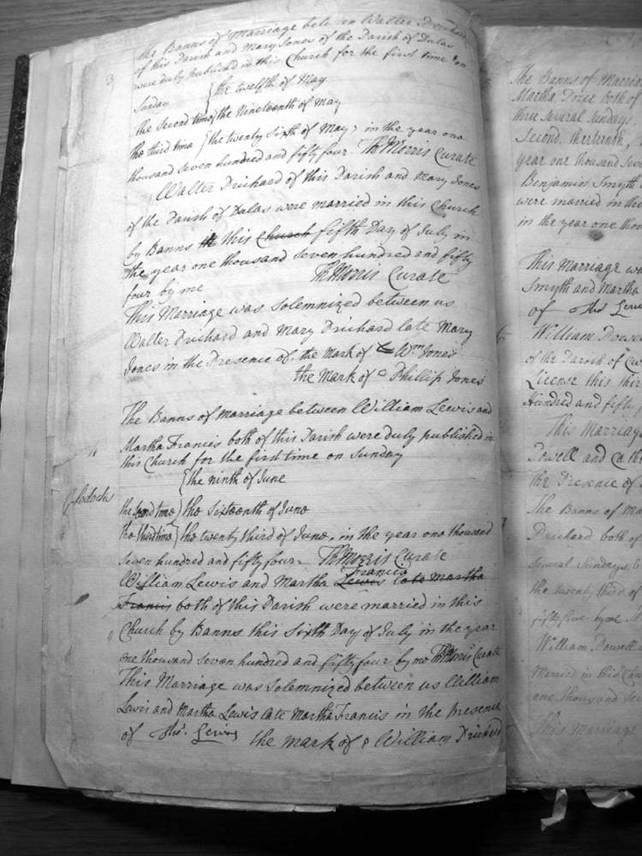 the Banns of Marriage between Walter Prichard
of this Parish and Mary Jones of the Parish of Dulas
were duly published in this Church for the first time on
Sunday the twelfth of May
the Second time the Nineteenth of May
the third time the twenty Sixth of May, in the year one
thousand seven hundred and fifty four Th Morris Curate
Walter Prichard of this Parish and Mary Jones
of the Parish of Dulas were married in this Church
by Banns this Church fifth Day of July in
the year one thousand seven hundred and fifty
four by me Th Morris Curate
This Marriage was Solemnized between us
Walter Prichard and Mary Prichard late Mary
Jones in the Presence of. the mark of Wm Jones
the mark of Phillip Jones
The Banns of Marriage between William Lewis and
Martha Francis both of this Parish were duly published in
this Church for the first time on Sunday
the ninth of June
the second time the Sixteenth of June
the third time the twenty third of June, in the year one thousand
seven hundred and fifty four Th Morris Curate
William Lewis and Martha Lewis Francis late Martha
Francis both of this Parish were married in this
Church by Banns this Sixth Day of July in the year
one thousand seven hundred and fifty four by me Th Morris Curate
This Marriage was Solemnized between us William
Lewis and Martha Lewis late Martha Francis in the Presence
of Thos. Lewis the mark of William
The Banns of
Martha both of
three several Sundays
Second, thirteenth,
year one thousand
Benjamin Smyth
were married in
in the year one
This Marriage
Smyth and Martha
of Thos Lewis
William
of the Parish of
License this
Hundred and fifty
This Marriage
Powell and
the Presence of
The Banns of
Prichard both of
several Sundays
the twenty third of
fifty five by me
William Powell
Married in this
one thousand
This Marriage